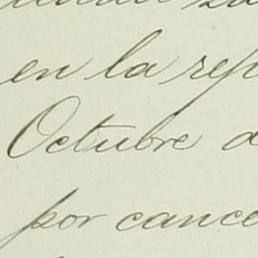 en la rep
Octubre d
por cance